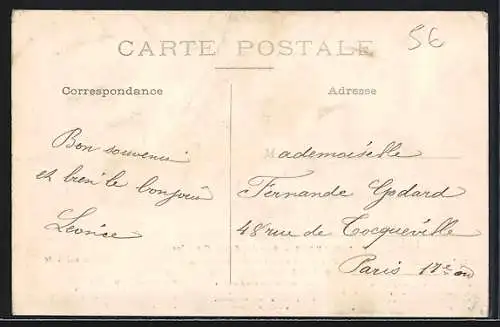 CARTE POSTALE
5€
Correspondance
Adresse
Bon souvenir
et bien le bonjour
Léonce
Mademoiselle
Fernande Godard
48 rue de Tocqueville
Paris 17e